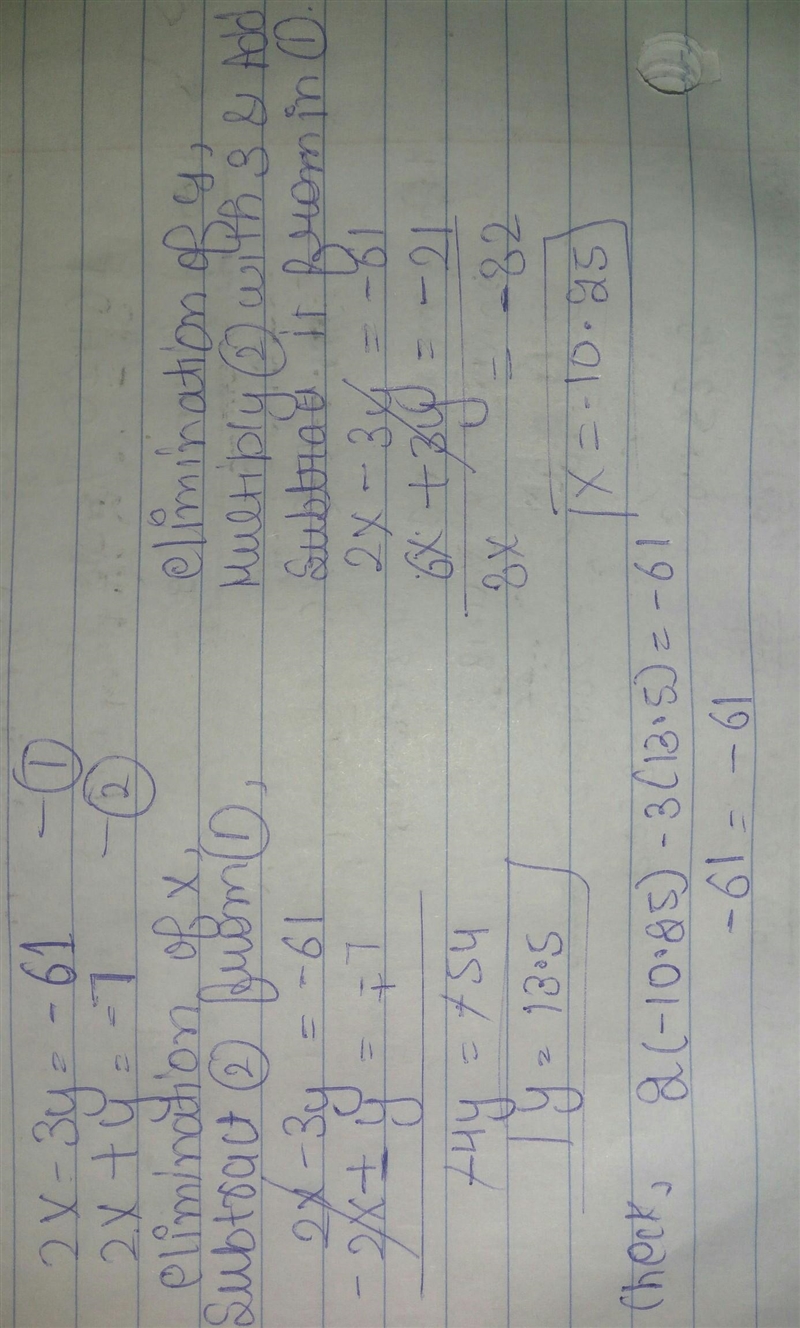 2x - 3y = -61 - ①
2x + y = -7 - ②
Elimination of x,
Subtract ② from ①,
2x - 3y = -61
- 2x ± y = ∓ 7
-4y = -54
y = 13.5
Elimination of y,
Multiply ② with 3 & Add
Subtract it from in ①.
2x - 3y = -61
6x + 3y = -21
8x = -82
x = -10.25
Check, 2(-10.25) - 3(13.5) = -61
-61 = -61